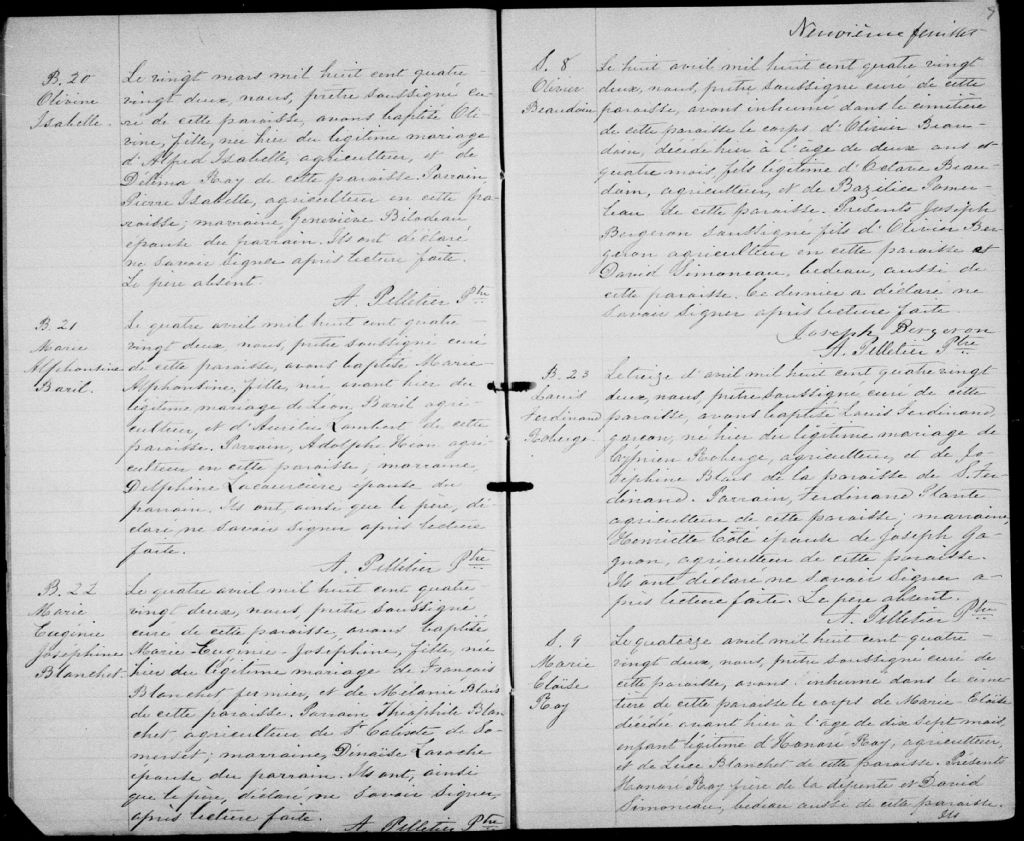 B. 20
Olivine
Isabelle.
Le vingt mars mil huit cent quatre-
vingt deux, nous, prêtre soussigné cu-
ré de cette paroisse, avons baptisé Oli-
vine, fille, née hier du légitime mariage
d'Alfred Isabelle, agriculteur, et de
Délima Roy de cette paroisse. Parrain,
Pierre Isabelle, agriculteur en cette pa-
roisse; marraine, Geneviève Bilodeau
épouse du parrain. Ils ont déclaré
ne savoir signer après lecture faite.
Le père absent.
A. Pelletier Ptre
B. 21
Marie
Alphontine
Baril
Le quatre avril mil huit cent quatre-
vingt deux, nous, prêtre soussigné curé
de cette paroisse, avons baptisé Marie-
Alphontine, fille, née avant hier du
légitime mariage de Léon Baril agri-
culteur, et d'Aurélie Lambert de cette
paroisse. Parrain, Adolphe agri-
culteur en cette paroisse; marraine,
Delphine épouse du
parrain. Ils ont, ainsi que le père, dé-
claré ne savoir signer après lecture
faite.
A. Pelletier Ptre
B. 22
Marie
Eugénie
Joséphine
Blanchet
Le quatre avril mil huit cent quatre
vingt deux, nous, prêtre soussigné
curé de cette paroisse, avons baptisé
Marie-Eugénie-Josephine, fille, née
hier du légitime mariage de Francois
Blanchet fermier, et de Mélanie Blais
de cette paroisse. Parrain Théophile Blan-
chet agriculteur de St Calixte de So-
merset; marraine, Dénaïse Laroche
épouse du parrain. Ils ont, ainsi
que le père, déclaré ne savoir signer,
après lecture faite.
A. Pelletier Ptre
9
Neuvième feuillet
S. 8
Olivier
Beaudoin
Le huit avril mil huit cent quatre vingt
deux, nous, prêtre soussigné curé de cette
paroisse, avons inhumé dans le cimetière
de cette paroisse le corps d'Olivier Beau-
doin, décédé hier à l'age de deux ans et
quatre mois, fils légitime d'Octave Beau-
doin, agriculteur, et de Bazilice Pomer-
leau de cette paroisse. Présents Joseph
Bergeron soussigné fils d'Olivier Ber-
geron agriculteur en cette paroisse et
David Simoneau, bedeau, aussi de
cette paroisse. Ce dernier a déclaré ne
savoir signer après lecture faite.
Joseph Bergeron
A. Pelletier Ptre
B. 23
Louis
Ferdinand
Roberge
Le treize d'avril mil huit cent quatre vingt
deux, nous, prêtre soussigné, curé de cette
paroisse, avons baptisé Louis Ferdinand,
garcon, né hier du légitime mariage de
Cyprien Roberge, agriculteur, et de Jo-
séphine Blais de la paroisse de S. Fer-
dinand. Parrain, Ferdinand Plante
agriculteur de cette paroisse; marraine,
Henriette Côté épouse de Joseph Ga-
gnon, agriculteur de cette paroisse.
Ils ont déclaré ne savoir signer a-
près lecture faite. Le père absent.
A. Pelletier Ptre
S. 9
Marie
Eloïse
Roy
Le quatorze avril mil huit cent quatre-
vingt deux, nous, prêtre soussigné curé de
cette paroisse, avons inhumé dans le cime-
tière de cette paroisse le corps de Marie-Eloïse
décédée avant hier à l'âge de dix sept mois,
enfant légitime d'Honoré Roy, agriculteur,
et de Luce Blanchet de cette paroisse. Présents
Honoré Roy père de la défunte et David
Simoneau, bedeau aussi de cette paroisse.
Ils